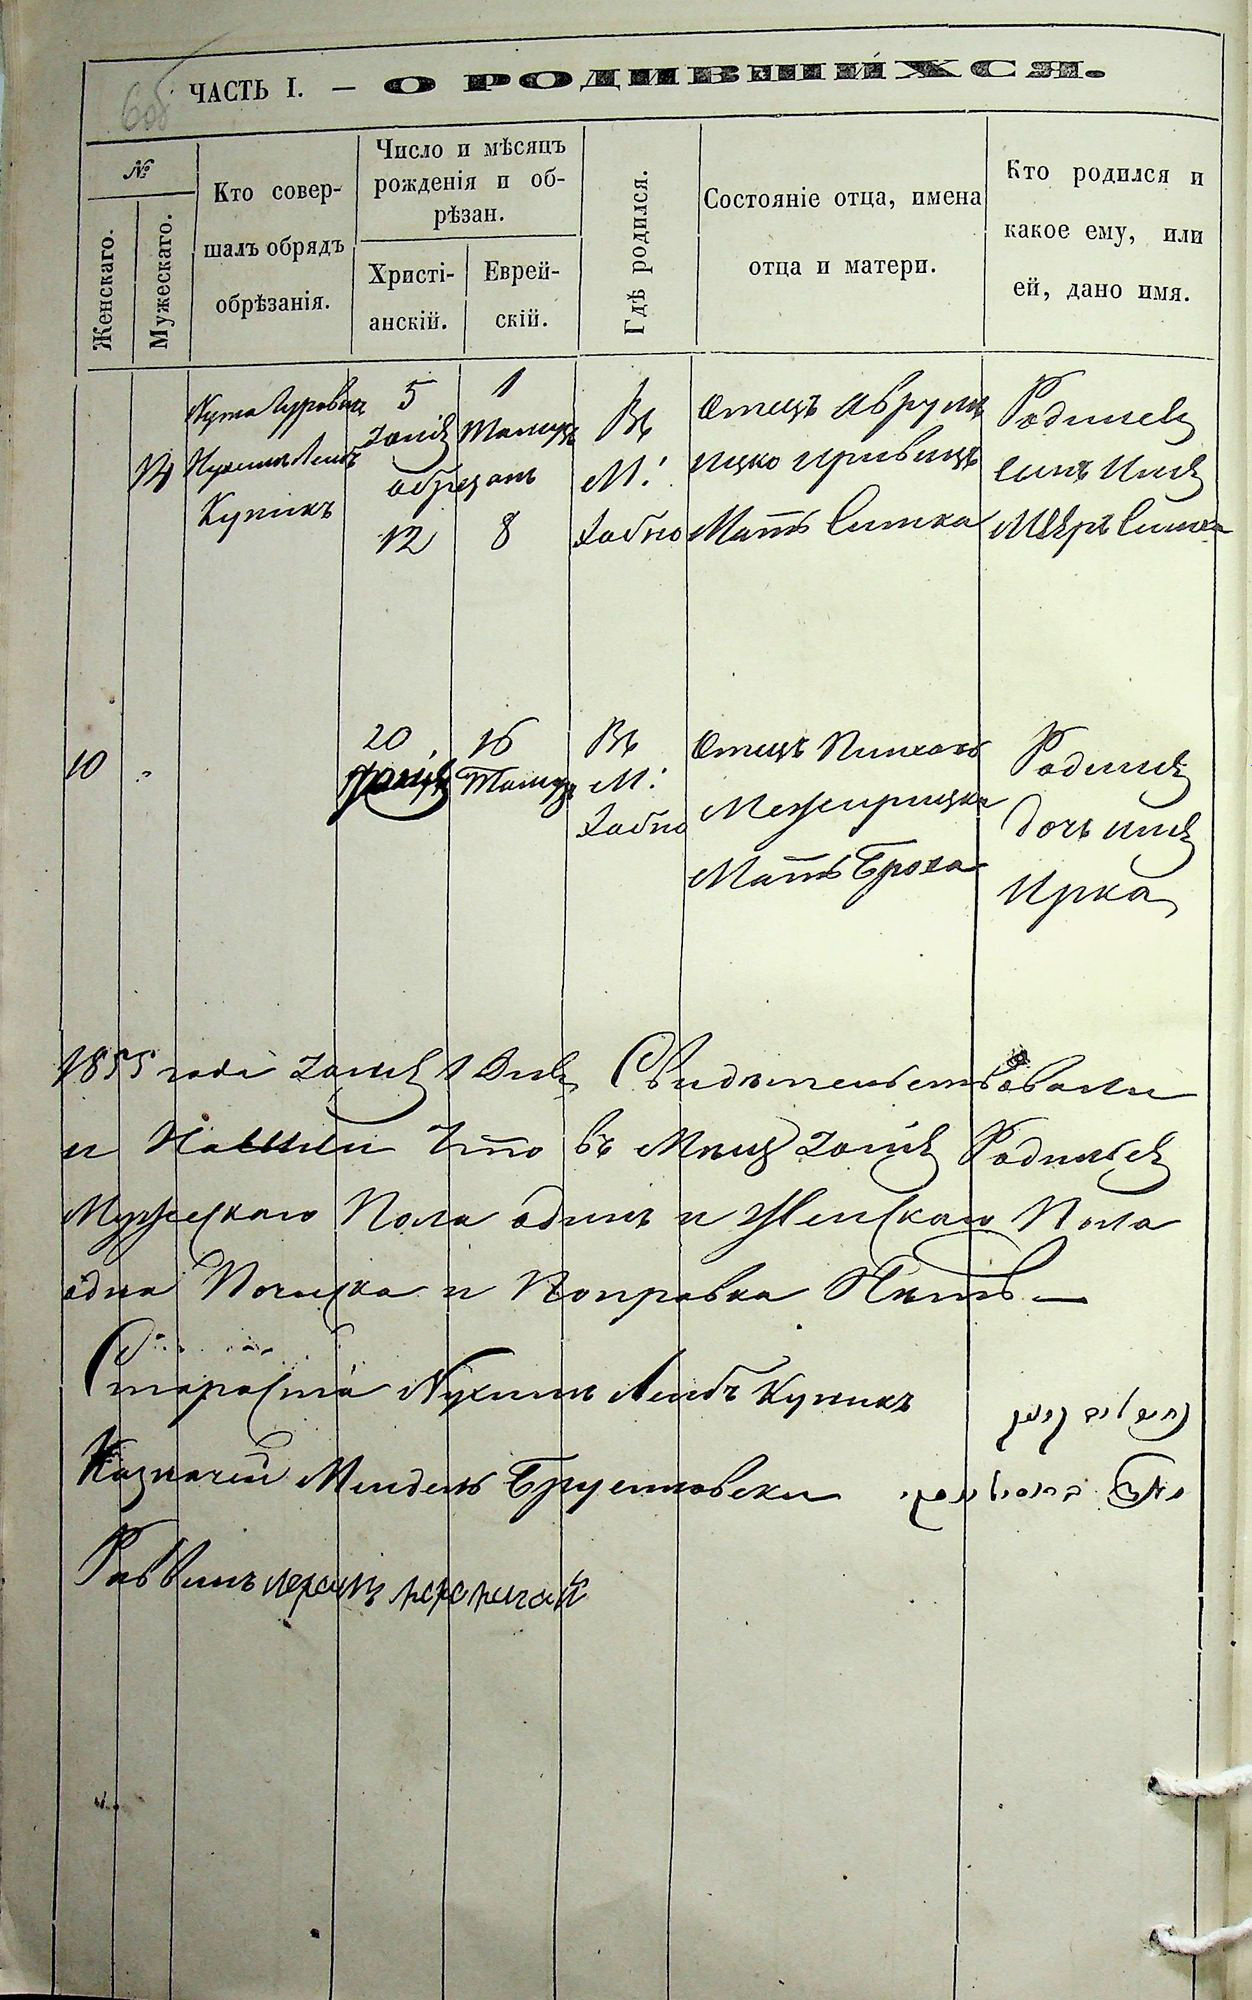 6об
ЧАСТЬ I. — О РОДИВШИХСЯ.
№
Женскаго.
Мужескаго.
Кто совер-
шалъ обрядъ
обрѣзанія.
Число и мѣсяцъ
рожденія и об-
рѣзан.
Христі-
анскій.
Еврей-
скій.
Гдѣ родился.
Состояніе отца, имена
отца и матери.
Кто родился и
какое ему, или
ей, дано имя.
14
Нухимъ Лейбъ
Купикъ
5
Іюня
обрезанъ
12
1
Тамузъ
8
Въ
М:
Хабно
Отецъ Аврумъ
Ицко
Мать Симка
Родился
сынъ Имя
10
20
Іюня
16
Тамузъ
Въ
М:
Хабно
Отецъ Пинхасъ
Межирицки
Мать Броха
Родилась
дочь имя
Ирка
1855 года Іюля 1 Дня Свидѣтельствовали
и Нашли Что въ Мѣсяце Іюня Родился
Мужескаго Пола одинъ и Женскаго Пола
одна Почистка и Поправка Нѣтъ —
Староста Нухимъ Лейбъ Купикъ
Казначей Мендель Брусиловски
Раввинъ